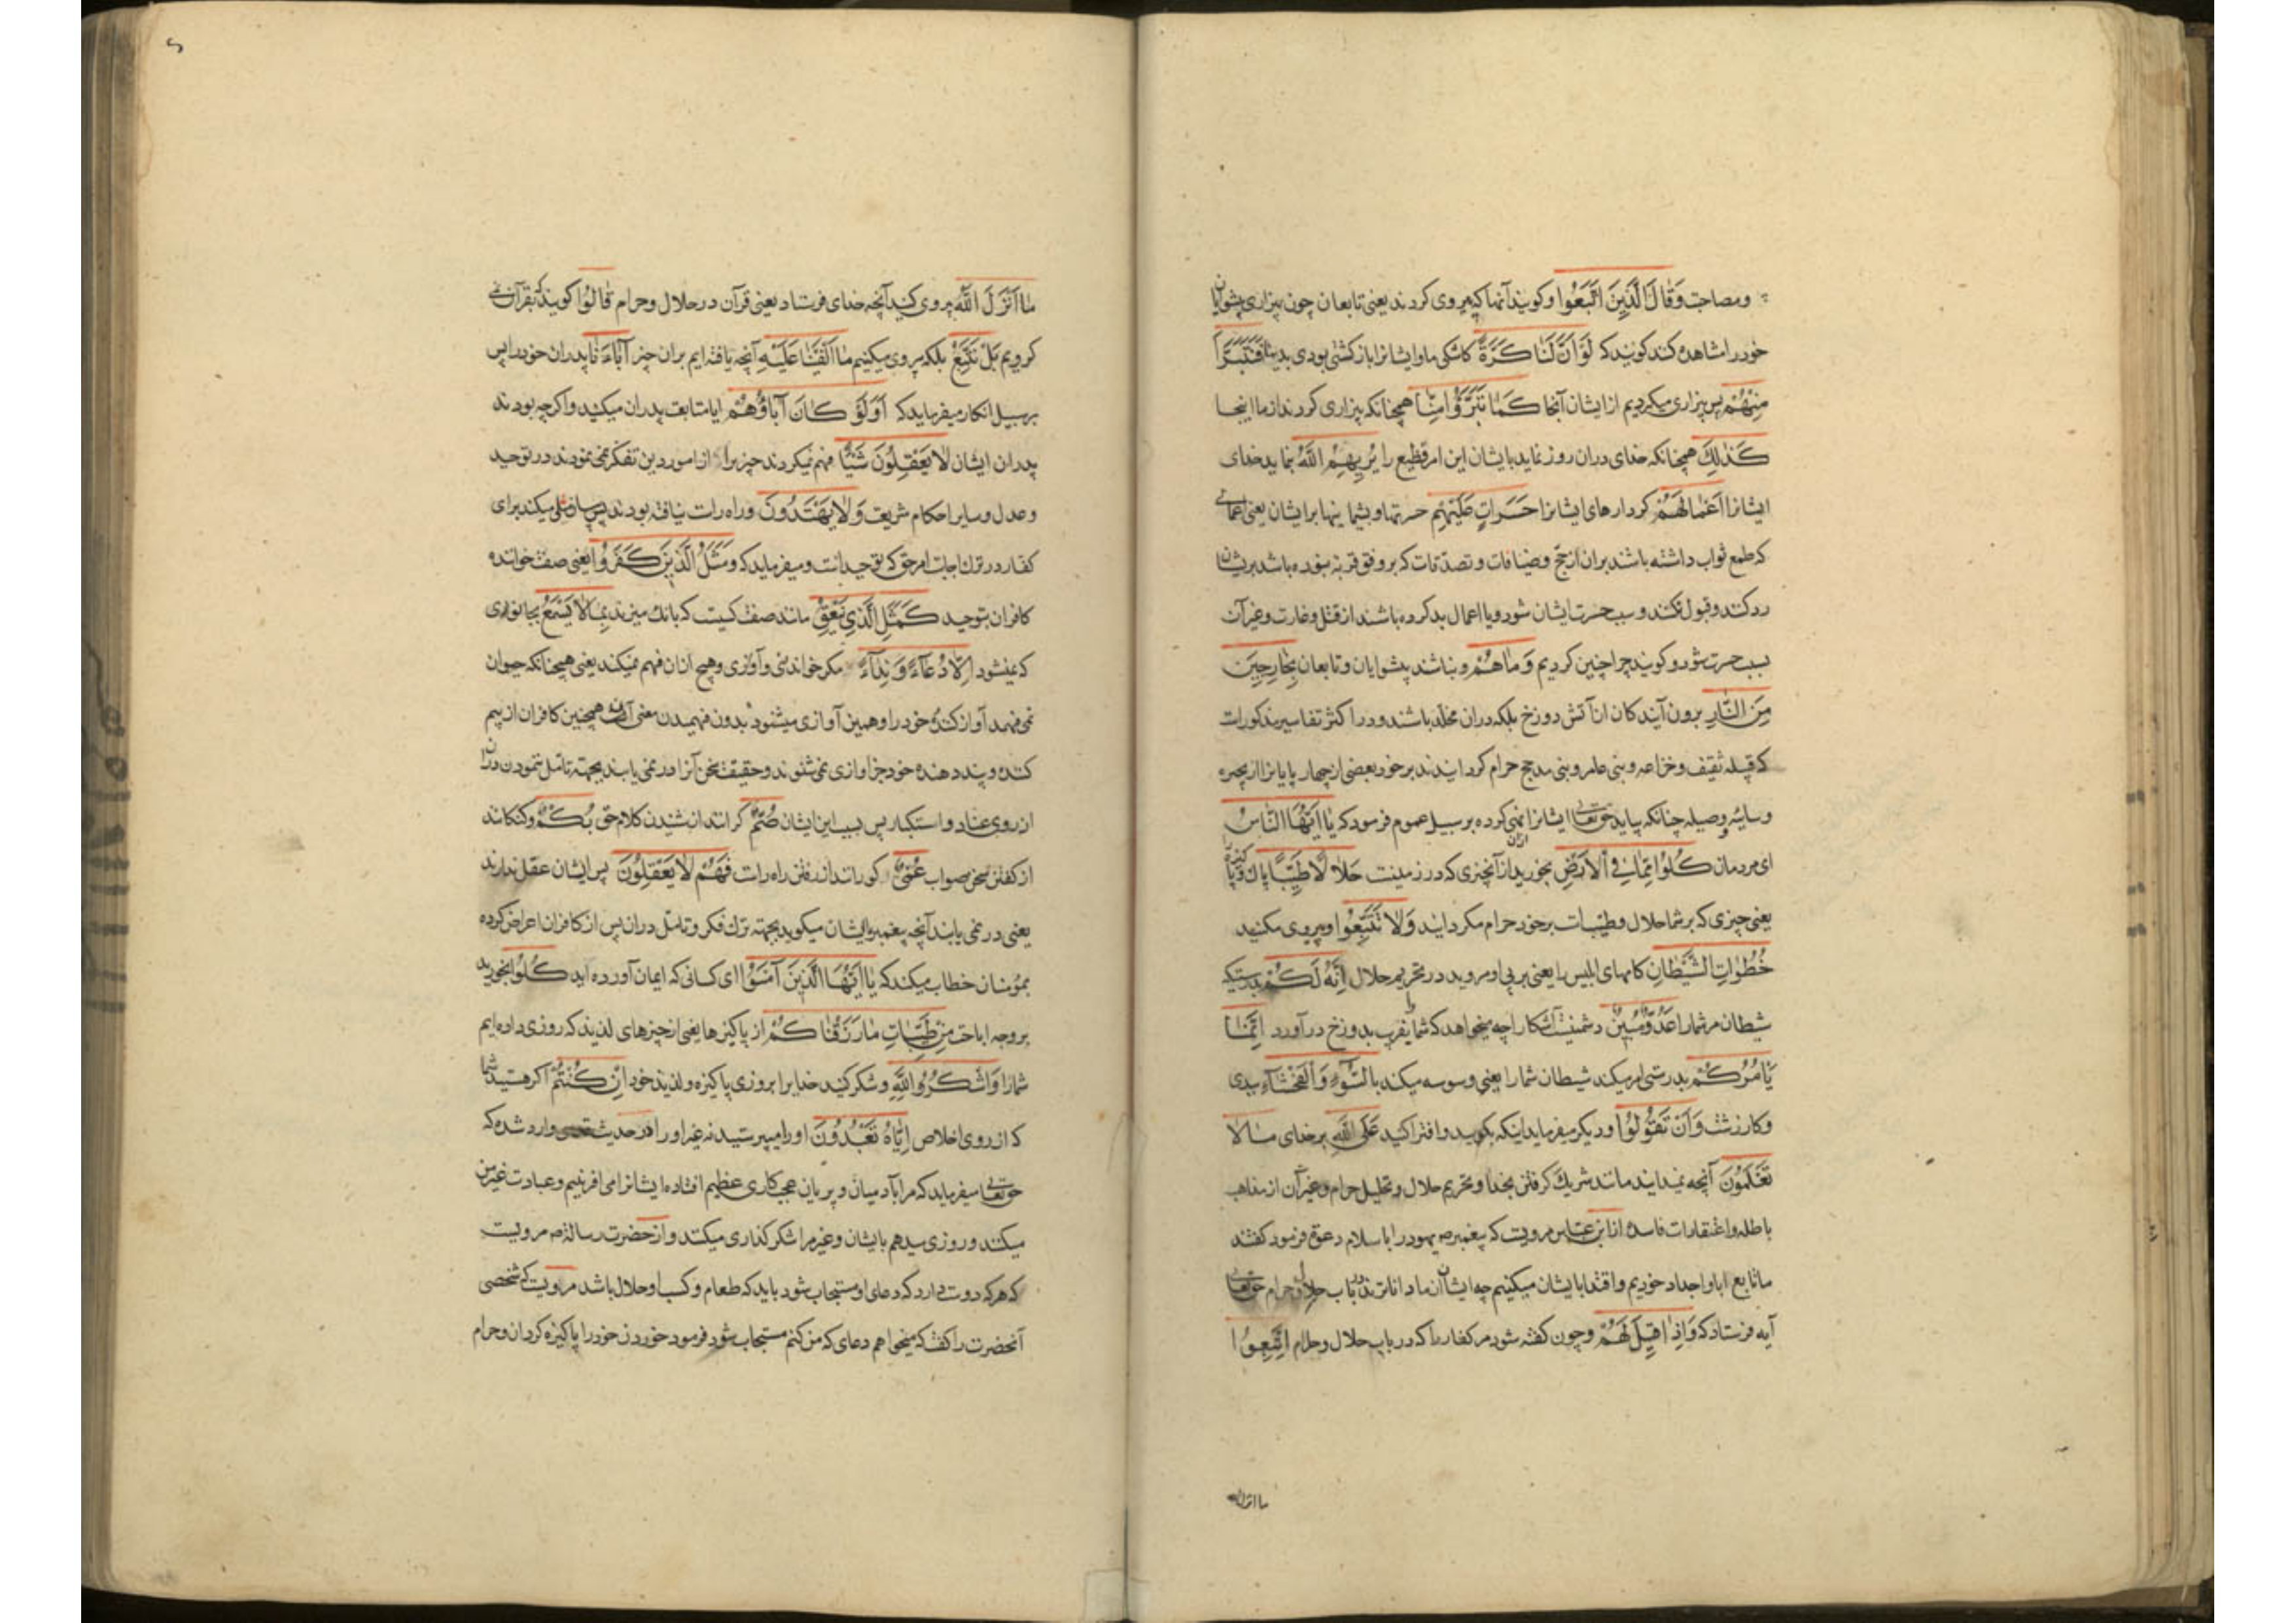 ومصاحبت وَقَالَ الَّذِينَ اتَّبَعُوا وکویند آنها که پیروی کردند یعنی تابعان چون بیزاری پیشوایان
خود را مشاهده کنند کویند که لَوْ أَنَّ لَنَا كَرَّةً کاشکی ما و ایشانرا باز کشتی بودی بدنیا فَنَتَبَرَّأَ
مِنْهُمْ پس بیزاری میکردیم از ایشان آنجا كَمَا تَبَرَّؤُا مِنَّا همچنانکه بیزاری کردند از ما اینجا
كَذٰلِكَ همچنانکه خدای دران روز نماید بایشان این امر فظیع را يُرِيهِمُ اللَّهُ بنماید خدای
ایشانرا أَعْمَالَهُمْ کردارهای ایشانرا حَسَرَاتٍ عَلَيْهِمْ حسرتها و پشیمانیها بر ایشان یعنی اعمالی
که طمع ثواب داشته باشند بران از حج و ضیافات و تصدقات که بر وفق قربة نبوده باشد بریشان
رد کنند و قبول نکنند و سبب حسرت ایشان شود و یا اعمال بد کرده باشند از قتل و غارت و غیر آن
سبب حسرت شود و کویند چرا چنین کردیم وَمَا هُمْ و نباشند پیشوایان و تابعان بِخَارِجِينَ
مِنَ النَّارِ برون آیندکان از آتش دوزخ بلکه دران مخلد باشند و در اکثر تفاسیر مذکورات
که قبیله ثقیف و خزاعه و بنی عامر و بنی مدلج حرام کردانیدند بر خود بعضی از چهارپایانرا از بحیره
و سایبه و وصیله چنانکه بیاید حق تعالی ایشانرا نهی کرده بر سبیل عموم فرمود که يَا أَيُّهَا النَّاسُ
ای مردمان كُلُوا مِمَّا فِي الْأَرْضِ بخورید از آنچیزی که در زمینست حَلَالًا طَيِّبًا پاک و پاکیزه
یعنی چیزی که بر شما حلال و طیبات بر خود حرام مکردانید وَلَا تَتَّبِعُوا و پیروی مکنید
خُطُوَاتِ الشَّيْطَانِ کامهای ابلیس را یعنی بر پی او مروید در تحریم حلال إِنَّهُ لَكُمْ بدرستیکه
شیطان مر شمارا عَدُوٌّ مُبِينٌ دشمنیست آشکارا چه میخواهد که شمارا بفریب بدوزخ در آورد إِنَّمَا
يَأْمُرُكُمْ بدرستی امر میکند شیطان شمارا یعنی وسوسه میکند بِالسُّوءِ وَالْفَحْشَاءِ ببدی
و کار زشت وَأَنْ تَقُولُوا و دیکر میفرماید اینکه بکویید و افترا کنید عَلَى اللَّهِ بر خدای مَا لَا
تَعْلَمُونَ آنچه نمیدانید مانند شریک کرفتن بخدا و تحریم حلال و تحلیل حرام و غیر آن از مذاهب
باطله و اعتقادات فاسده از ابن عباس مرویست که پیغمبر ص یهود را باسلام دعوة فرمود کفتند
ما تابع ابا و اجداد خودیم و اقتدا بایشان میکنیم چه ایشان از ما داناترند در باب حلال و حرام حق تعالی
آیه فرستاد که وَإِذَا قِيلَ لَهُمْ و چون کفته شود مر کفار را که در باب حلال و حرام اتَّبِعُوا
ما انزل الله
مَا أَنْزَلَ اللَّهُ پیروی کنید آنچه خدای فرستاد یعنی قرآن در حلال و حرام قَالُوا کویند که بقرآن نمی
کرویم بَلْ نَتَّبِعُ بلکه پیروی میکنیم مَا أَلْفَيْنَا عَلَيْهِ آنچه یافته ایم بران چیز آبَاءَنَا پدران خود را پس
بر سبیل انکار میفرماید که أَوَلَوْ كَانَ آبَاؤُهُمْ ایا متابعت پدران میکنید و اکرچه بودند
پدران ایشان لَا يَعْقِلُونَ شَيْئًا فهم نمیکردند چیزیرا از امور دین تفکر نمی نمودند در توحید
و عدل و سایر احکام شریعت وَلَا يَهْتَدُونَ و راه راست نیافته بودند پس بیان مثلی میکند برای
کفار در ترک اجابت امر حق که توحید است و میفرماید که وَمَثَلُ الَّذِينَ كَفَرُوا یعنی صفت خواننده
کافران بتوحید كَمَثَلِ الَّذِي يَنْعِقُ مانند صفت کسیست که بانک میزند بِمَا لَا يَسْمَعُ بجانوری
که نمیشنود إِلَّا دُعَاءً وَنِدَاءً مکر خواندنی و آوازی و هیچ ازان فهم نمیکند یعنی همچنانکه حیوان
نمی فهمد آواز کننده خود را و همین آوازی میشنود بدون فهمیدن معنی آن همچنین کافران از بیم
کننده و پند دهنده خود جز آوازی نمی شنوند و حقیقت سخن آنرا در نمی یابند بجهة تامل ننمودن دران
از روی عناد و استکبار پس بسبب این ایشان صُمٌّ کرانند از شنیدن کلام حق بُكْمٌ و کنکانند
از کفتن سخن صواب عُمْيٌ کورانند از رفتن راه راست فَهُمْ لَا يَعْقِلُونَ پس ایشان عقل ندارند
یعنی در نمی یابند آنچه پیغمبر بایشان میکوید بجهة ترک فکر و تامل دران پس از کافران اعراض کرده
بمؤمنان خطاب میکند که يَا أَيُّهَا الَّذِينَ آمَنُوا ای کسانی که ایمان آورده اید كُلُوا بخورید
بر وجه اباحت مِنْ طَيِّبَاتِ مَا رَزَقْنَاكُمْ از پاکیزها یعنی از چیزهای لذیذ که روزی داده ایم
شمارا وَاشْكُرُوا لِلَّهِ و شکر کنید خدایرا بر روزی پاکیزه و لذیذ خود إِنْ كُنْتُمْ اکر هستید شما
که از روی اخلاص إِيَّاهُ تَعْبُدُونَ او را میپرستید نه غیر او را در حدیث قدسی وارد شده که
حق تعالی میفرماید که مرا با آدمیان و پریان عجب کاری عظیم افتاده ایشانرا می افرینم و عبادت غیر من
میکنند و روزی میدهم بایشان و غیر مرا شکر کذاری میکنند و از حضرت رسالة ص مرویست
که هر که دوست دارد که دعای او مستجاب شود باید که طعام و کسب او حلال باشد مرویست که شخصی
آنحضرت را کفت که میخواهم دعای که من کنم مستجاب شود فرمود خوردن خود را پاکیزه کردان و حرام